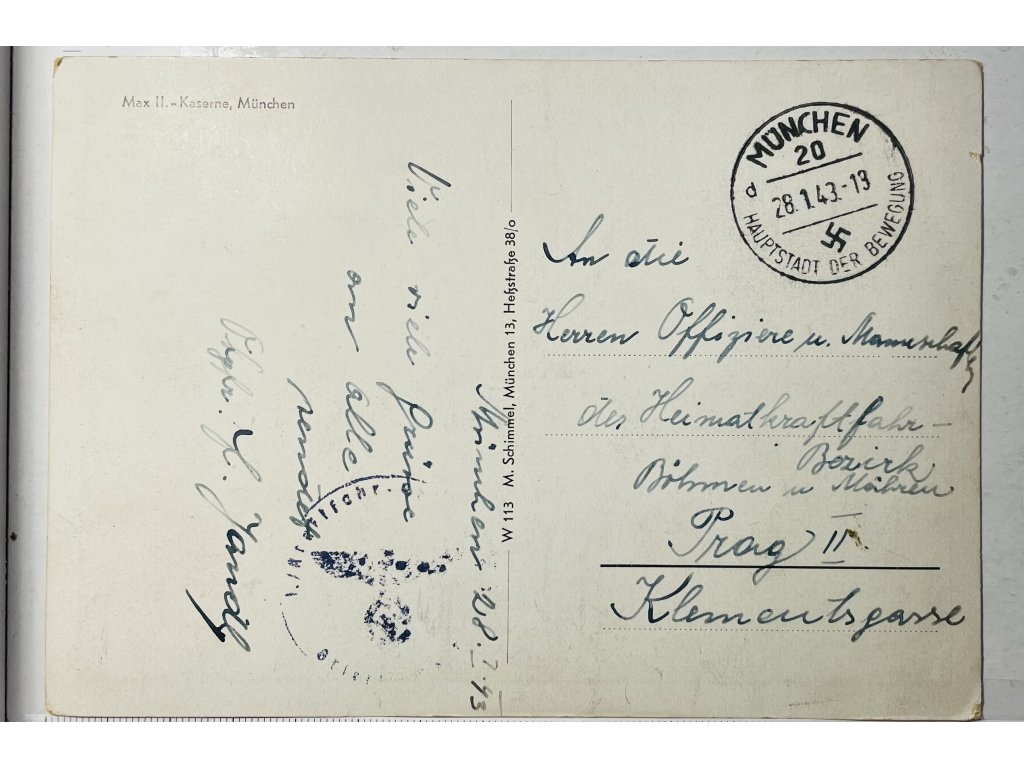 Max II.-Kaserne, München
München 28.I.43
Viele viele Grüsse
an alle
sendet
H. Jandl
Briefst
W 113 M. Schimmel, München 13, Heßstraße 38/0
MÜNCHEN
20
d
28.1.43.-13
HAUPTSTADT DER BEWEGUNG
An die
Herren Offiziere u. Mannschaften
des Heimatkraftfahr-
Bezirk
Böhmen u Mähren
Prag II.
Klementsgasse